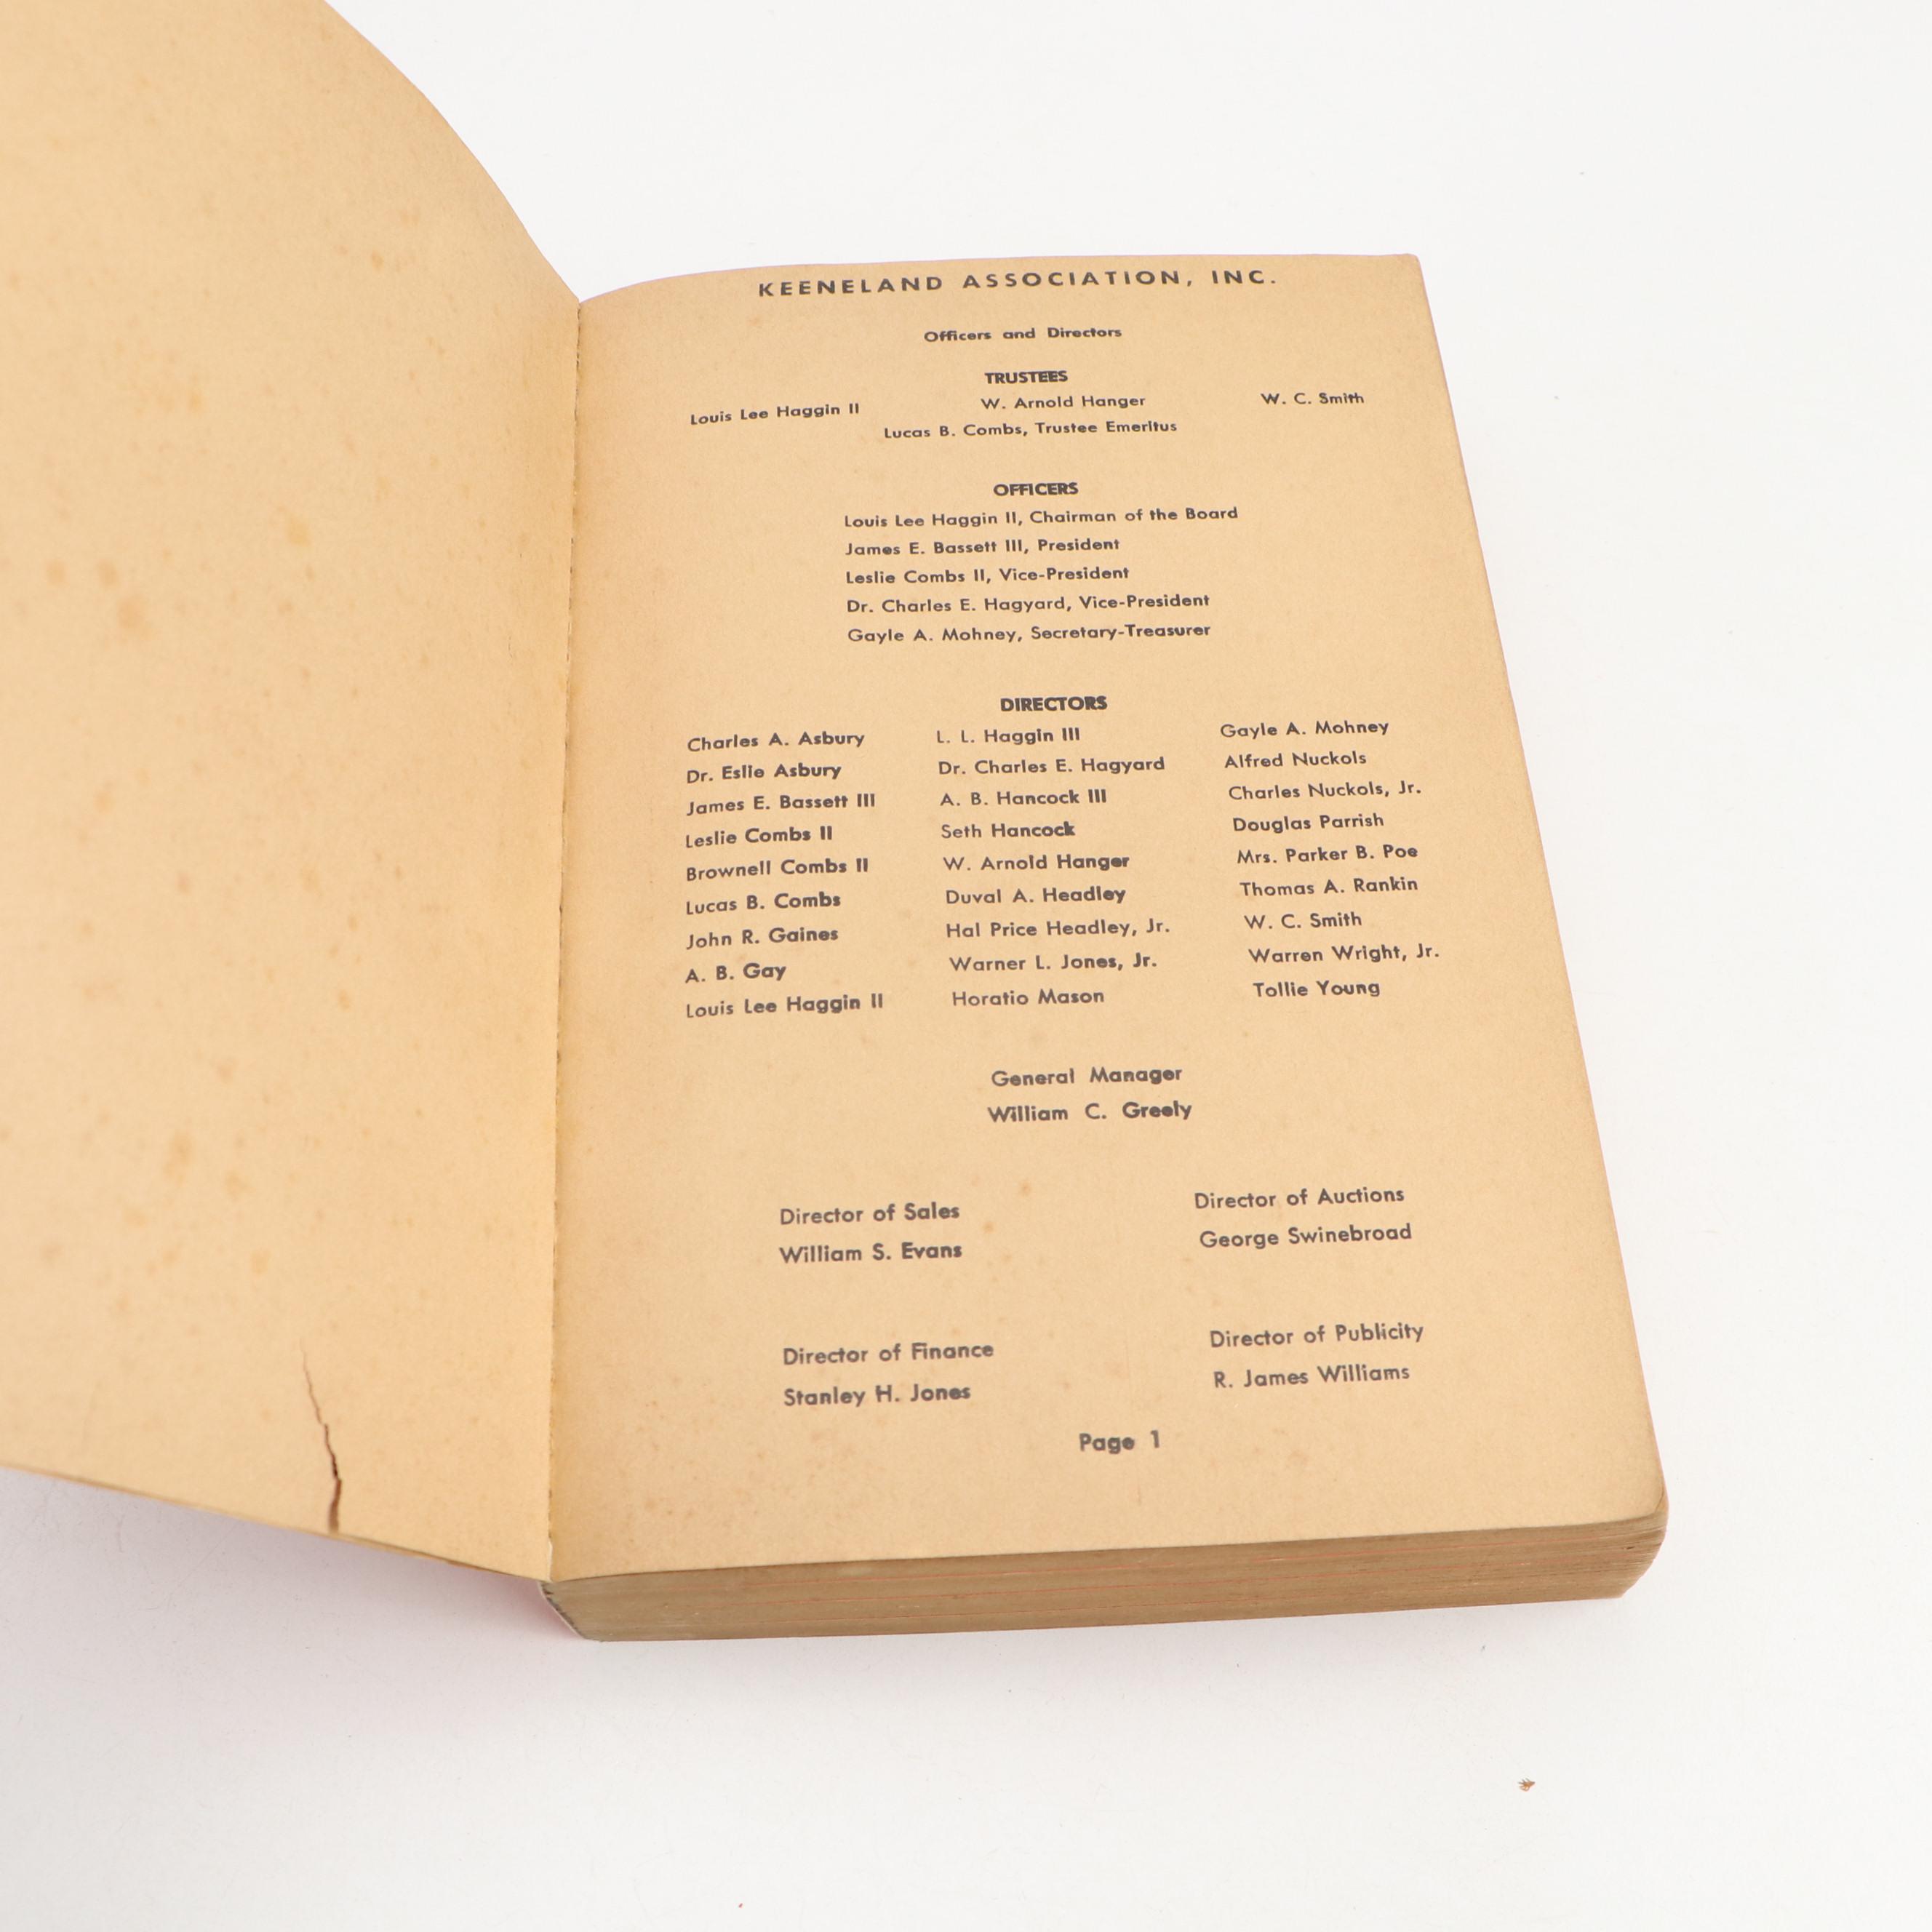 KEENELAND ASSOCIATION, INC.
Officers and Directors
TRUSTEES
Louis Lee Haggin II W. Arnold Hanger W. C. Smith
Lucas B. Combs, Trustee Emeritus
OFFICERS
Louis Lee Haggin II, Chairman of the Board
James E. Bassett III, President
Leslie Combs II, Vice-President
Dr. Charles E. Hagyard, Vice-President
Gayle A. Mohney, Secretary-Treasurer
DIRECTORS
Charles A. Asbury L. L. Haggin III Gayle A. Mohney
Dr. Eslie Asbury Dr. Charles E. Hagyard Alfred Nuckols
James E. Bassett III A. B. Hancock III Charles Nuckols, Jr.
Leslie Combs II Seth Hancock Douglas Parrish
Brownell Combs II W. Arnold Hanger Mrs. Parker B. Poe
Lucas B. Combs Duval A. Headley Thomas A. Rankin
John R. Gaines Hal Price Headley, Jr. W. C. Smith
A. B. Gay Warner L. Jones, Jr. Warren Wright, Jr.
Louis Lee Haggin II Horatio Mason Tollie Young
General Manager
William C. Greely
Director of Sales Director of Auctions
William S. Evans George Swinebroad
Director of Finance Director of Publicity
Stanley H. Jones R. James Williams
Page 1